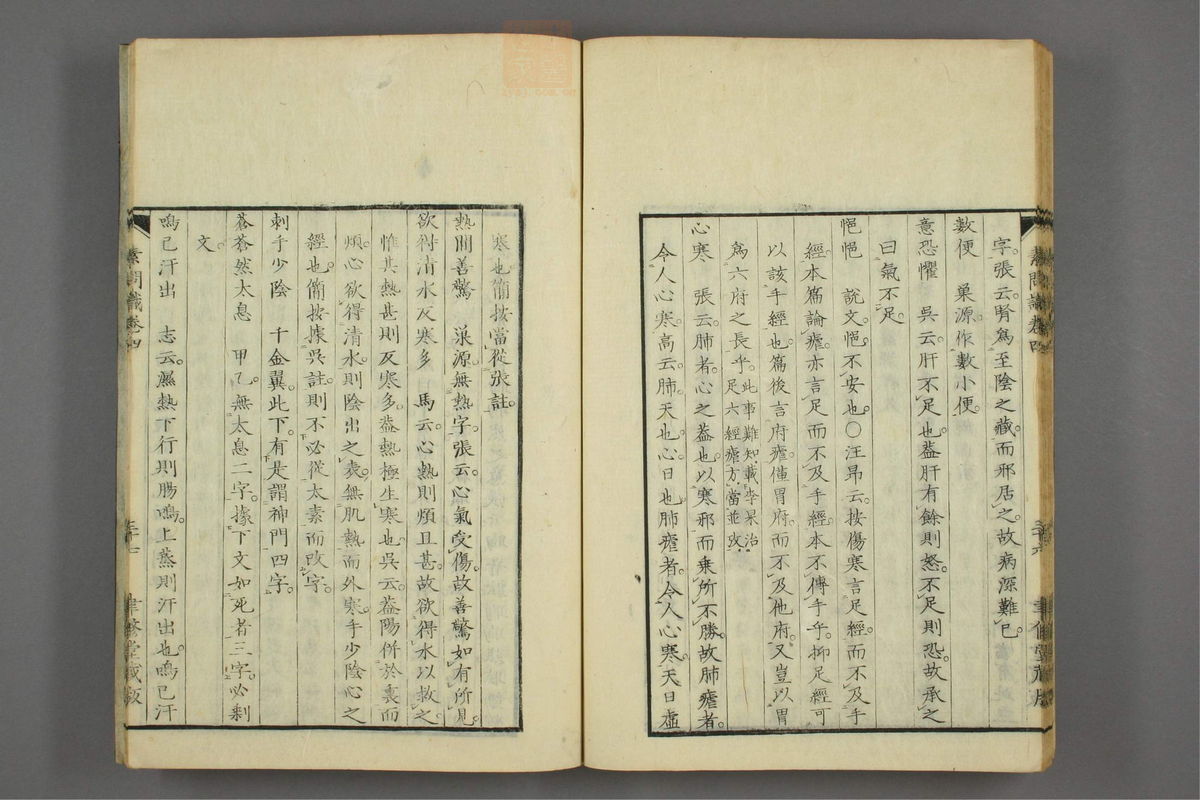 字。張云。腎爲至陰之藏。而邪居之。故病深難已。
數便　巢源。作數小便。
意恐懼　吳云。肝不足也。蓋肝有餘則怒。不足則恐。故承之
曰氣不足。
悒悒　說文。悒不安也。○汪昂云。按傷寒言足經。而不及手
經。本篇論瘧。亦言足而不及手經。本不傳手乎。抑足經可
以該手經也。篇後言府瘧。僅胃府。而不及他府。又豈以胃
爲六府之長乎。此事難知載李杲治
足六經瘧方。當並攷
心寒　張云。肺者。心之蓋也。以寒邪而乘所不勝。故肺瘧者。
令人心寒。高云。肺天也。心日也。肺瘧者。令人心寒。天日虛
素問識卷四
三十六
聿修堂藏版
寒也。簡按當從張註。
熱間善驚　巢源。無熱字。張云。心氣受傷。故善驚如有所見。
欲得清水反寒多　馬云。心熱則煩且甚。故欲得水以救之。
惟其熱甚則反寒多。蓋熱極生寒也。吳云。蓋陽併於裏而
煩。心欲得清水。則陰出之表。無肌熱而外寒。手少陰心之
經也。簡按據吳註。則不必從太素而改字。
刺手少陰　千金翼。此下。有是謂神門四字。
蒼蒼然太息　甲乙。無太息二字。據下文如死者三字。必剩
文。
鳴已汗出　志云。濕熱下行則腸鳴。上蒸則汗出也。鳴已汗
素問識卷四
三十七
聿修堂藏版